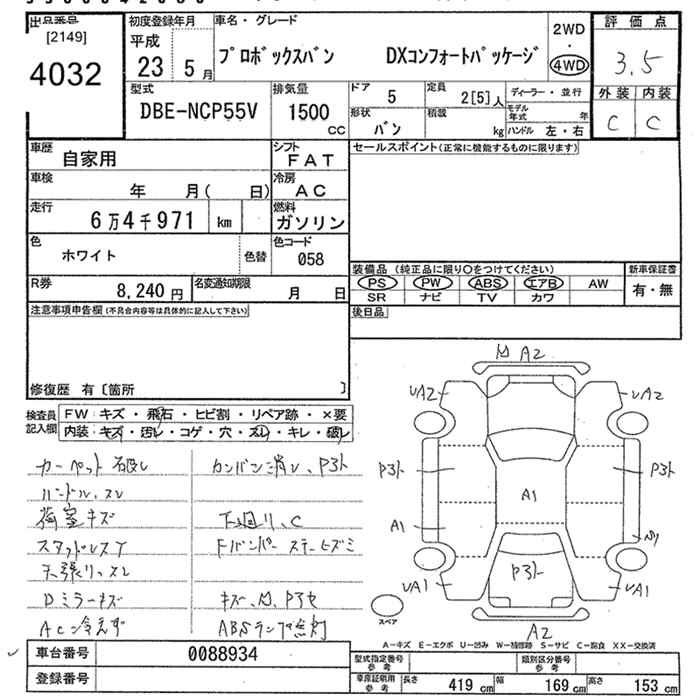 出品番号 [2149] 4032
初度登録年月 平成 23 5月
車名・グレード プロボックスバン DXコンフォートパッケージ
2WD ・ 4WD
評価点 3.5
外装 内装
C C
型式 DBE-NCP55V
排気量 1500 cc
ドア 5
定員 2[5]人
ディーラー・並行
形状 バン
積載 kg
モデル年式 年
ハンドル 左・右
車歴 自家用
シフト FAT
セールスポイント(正常に機能するものに限ります)
車検 年 月( 日)
冷房 AC
走行 6万4千971 km
燃料 ガソリン
色 ホワイト 色替
色コード 058
装備品(純正品に限り○をつけてください) 新車保証書
PS PW ABS エアB AW 有・無
SR ナビ TV カワ
R券 8,240円
名変通知期限 月 日
後日品
注意事項申告欄(不具合内容等は具体的に記入して下さい)
修復歴 有〔箇所 〕
検査員記入欄
FW: キズ・飛石・ヒビ割・リペア跡・×要
内装: キズ・汚レ・コゲ・穴・スレ・キレ・破レ
カーペット破レ
カンバン消し、P3ト
ハンドル、スレ
荷室キズ
下廻り、C
スタッドレスT
Fバンパー ステーヒズミ
天張り、スレ
Dミラーキズ
ACン冷えず
ABSランプ点灯
A2
UA2
UA2
P3ト
P3ト
A1
A1
P3ト
UA1
UA1
A2
スペア
A-キズ E-エクボ U-凹み W-補修跡 S-サビ C-腐食 XX-交換済
車台番号 0088934
登録番号
型式指定番号 参考
類別区分番号 参考
車庫証明用 参考 長さ 419cm 幅 169cm 高さ 153cm